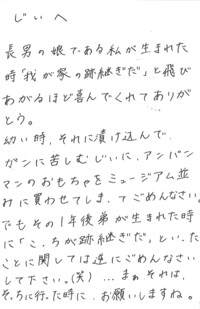 じいへ
長男の娘である私が生まれた
時「我が家の跡継ぎだ」と飛び
あがるほど喜んでくれてありが
とう。
幼い時、それに漬け込んで、
ガンに苦しむじいに、アンパン
マンのおもちゃをミュージアム並
みに買わせてしまってごめんなさい。
でもその1年後弟が生まれた時
に「こっちが跡継ぎだ」といった
ことに関しては逆にごめんなさい
して下さい。(笑)…まぁそれは、
そっちに行った時に、お願いしますね。